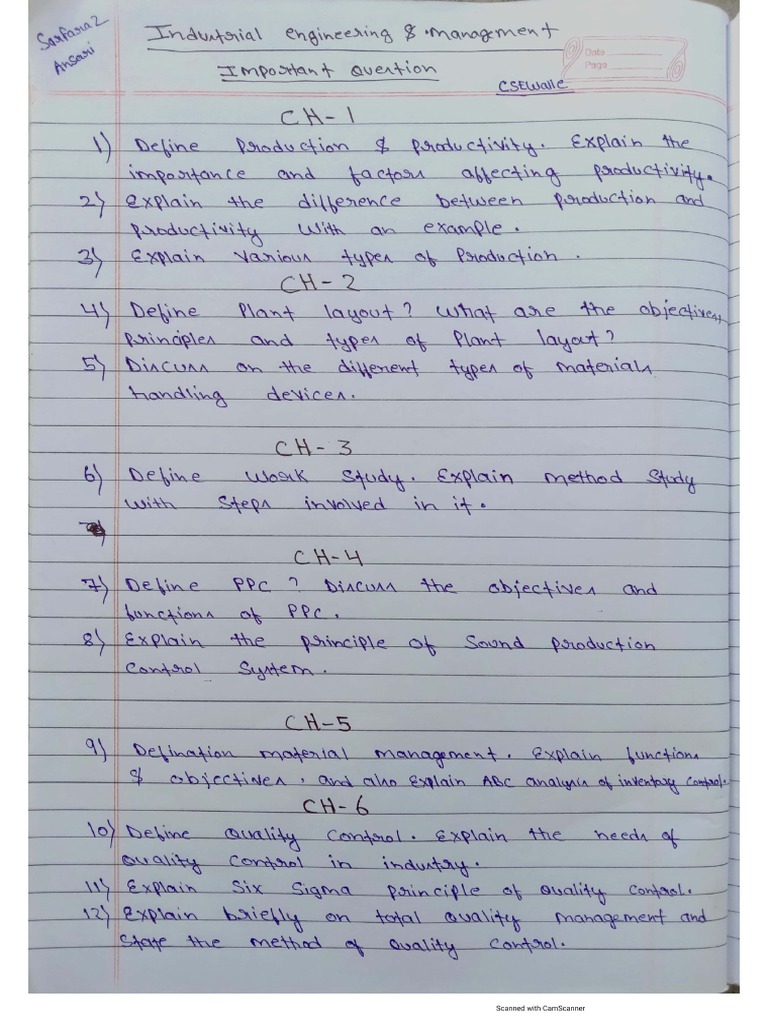 Sarfaraz Ansari
Industrial engineering & management
Important Question
CSEWalle
Date
Page
CH-1
1) Define Production & Productivity. Explain the
importance and factors affecting productivity.
2) Explain the difference between production and
productivity with an example.
3) Explain various types of Production.
CH-2
4) Define Plant layout? What are the objectives,
principles and types of Plant layout?
5) Discuss on the different types of materials
handling devices.
CH-3
6) Define Work Study. Explain method Study
with Steps involved in it.
CH-4
7) Define PPC? Discuss the objectives and
functions of PPC.
8) Explain the principle of Sound production
Control System.
CH-5
9) Defination material management. Explain functions
& objectives, and also Explain ABC analysis of inventory control.
CH-6
10) Define Quality Control. Explain the needs of
Quality Control in industry.
11) Explain Six Sigma principle of Quality Control.
12) Explain briefly on total Quality management and
State the method of Quality Control.
Scanned with CamScanner